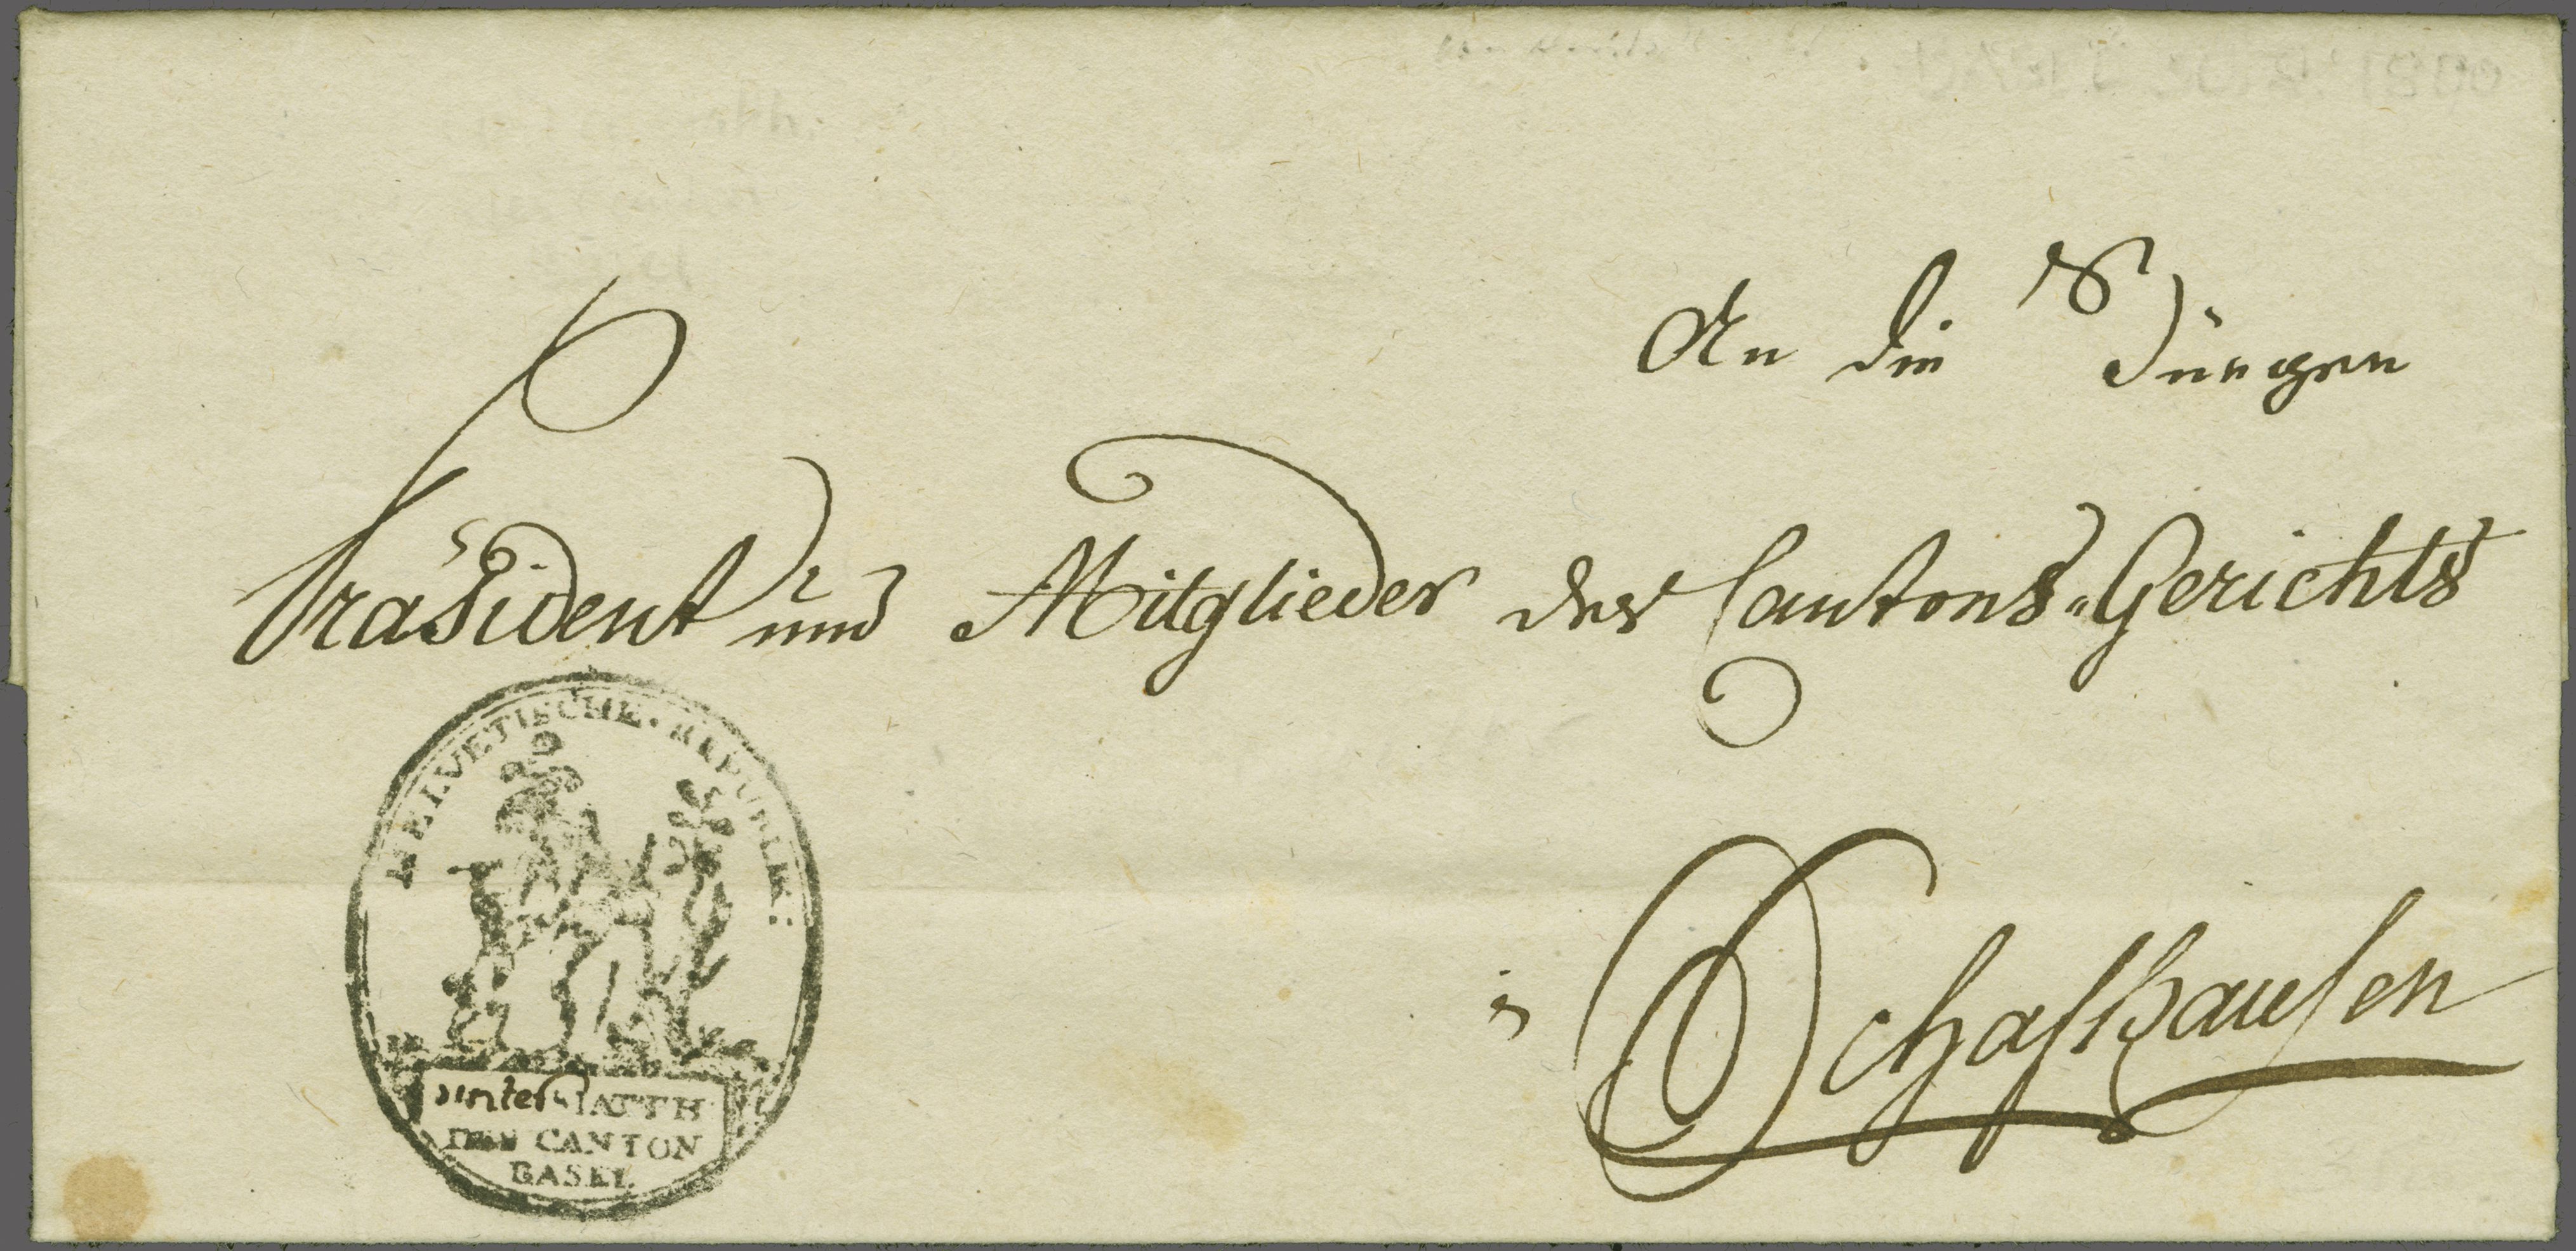 An die Bürger
Präsident und Mitglieder des Cantons-Gerichts
in Schafhausen
HELVETISCHE. REPUBLIK:
unterSTATTH
DES CANTON
BASEL